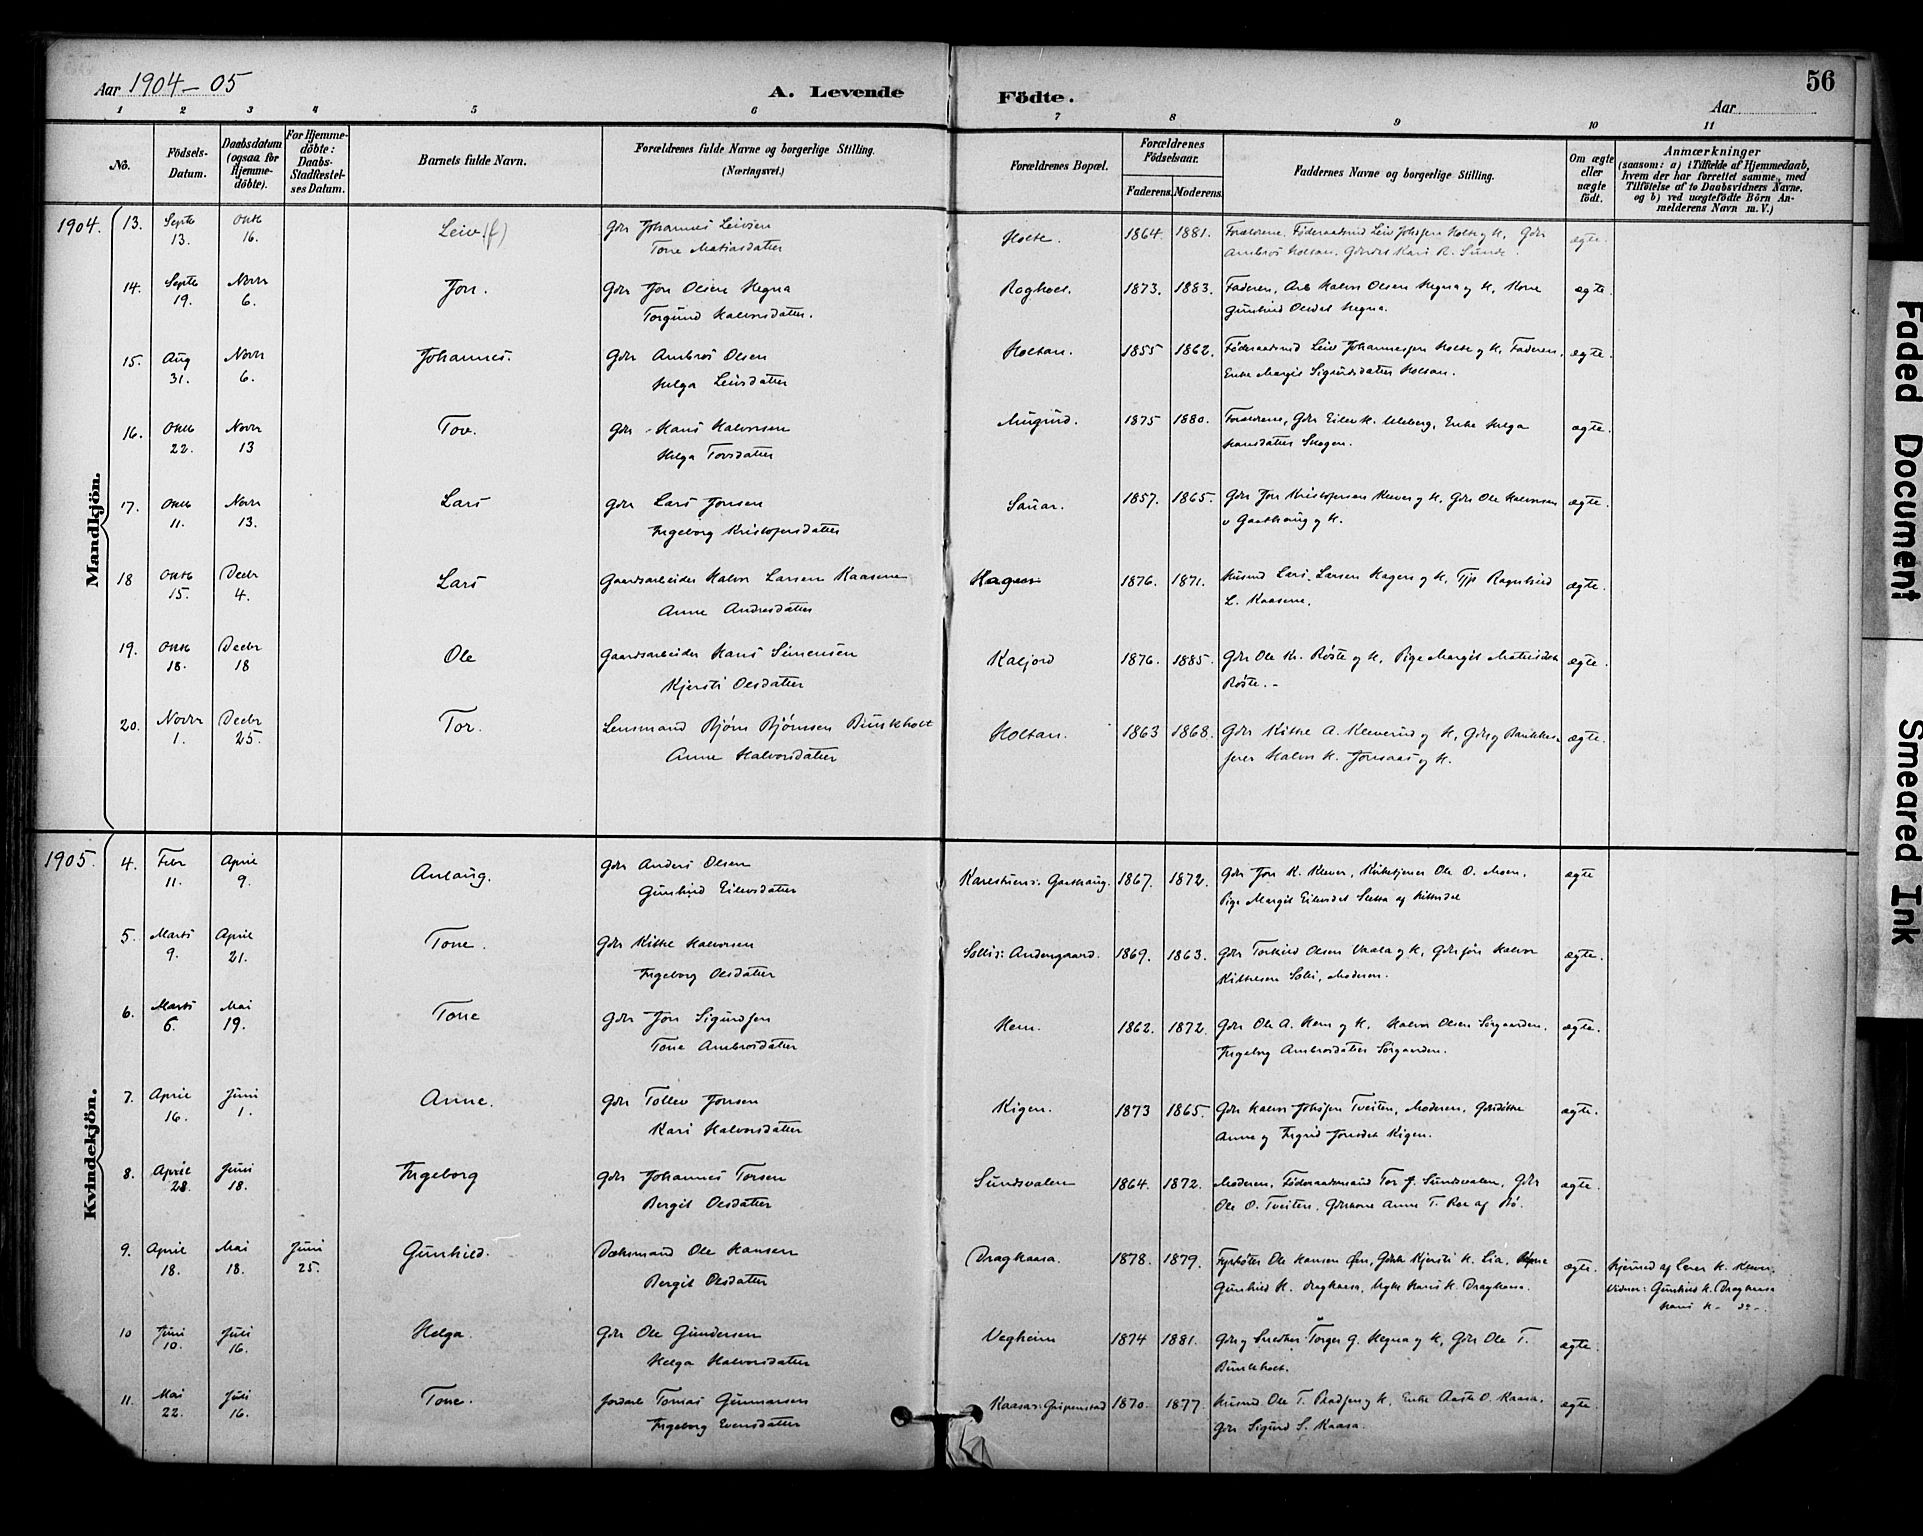 56
Aar 1904-05
A. Levende Födte.
Aar
1 2 3 4 5 6 7 8 9 10 11
No.
Födsels-Datum.
Daabsdatum (ogsaa for Hjemme-döbte).
For Hjemme-döbte: Daabs-Stadfæstel-ses Datum.
Barnets fulde Navn.
Forældrenes fulde Navne og borgerlige Stilling. (Næringsvei.)
Forældrenes Bopæl.
Forældrenes Födselsaar.
Faderens. Moderens.
Faddernes Navne og borgerlige Stilling.
Om ægte eller uægte födt.
Anmærkninger
(saasom: a) i Tilfælde af Hjemmedaab, hvem der har forrettet samme, med Tilföielse af to Daabsvidners Navne, og b) ved uægtefödte Börn An-melderens Navn m. V.)
Mandkjön.
1904. 13. Septb 13. Oktb 16. Leiv. (f) Gdr Johannes Leivsen Holte. 1864. 1881. Forældrene, Föderaadsmd Leiv Johsen Holte og H, Gdr ægte.
Tone Matiasdatter Ambros Holtan, Kari K. Sunde.
14. Septb 19. Novr 6. Jon. Gdr Jon Olsen Hegna Rogholt. 1873. 1883. Faderen, Arb Halvor Olsen Hegna og H, Kone ægte.
Torgund Halvorsdatter. Gunhild Olsdat Hegna.
15. Aug 31. Novr 6. Johannes. Gdr Ambros Olsen Holtan. 1855 1862. Föderaadsmd Leiv Johannesen Holte og H, Faderen, ægte.
Helga Leivsdatter Enke Margit Sigurdsdatter Holtan.
16. Oktb 22. Novr 13 Tov. Gdr Hans Halvorsen 1875 1880. Forældrene, Gdr Eilev H. Uleberg, Enke Helga ægte.
Helga Tovsdatter Hansdatter Skogen.
17. Oktb 11. Novr 13. Lars Gdr Lars Jonsen Sauar. 1857. 1865. Gdr Jon Kristofersen Klever og H, Gdr Ole Halvorsen ægte.
Ingeborg Kristofersdatter v Gaathaug og H.
18 Oktb 15. Decbr 4. Lars Gaardsarbeider Halvor Larsen Kaasene Hagen 1876. 1871. Husmd Lars Larsen Hagen og H, Tjp Ragnhild ægte.
Anne Andresdatter L. Kaasene.
19. Oktb 18. Decbr 18 Ole Gaardsarbeider Hans Simensen Kaljord 1876. 1885. Gdr Ole Kr. Röste og H, Pige Margit Matiasdat ægte.
Kjersti Olsdatter Röste.
20. Novr 1. Decbr 25. Tor. Lensmand Björn Björnsen Bunkholt Holtan. 1863 1868. Gdr Kittel A. Kleverud og H, Gdr og ægte.
Anne Halvorsdatter Halvor H. Jonsaas og H.
Kvindekjön.
1905. 4. Febr 11. April 9. Anlaug. Gdr Anders Olsen Karlstuen i Gaathaug. 1867. 1872. Gdr Jon K. Klever, Kirketjener Ole O. Moen, ægte
Gunhild Eilevsdatter Pige Margit Eilevsdat af Hitterdal
5. Marts 9. April 21. Tone. Gdr Kittel Halvorsen Solli i Andengaard. 1869. 1863. Gdr Torkild Olsen Vaala og H, Gdrsön Halvor ægte.
Ingeborg Olsdatter Kittelsen Solli, Moderen.
6. Marts 6. Mai 19. Tone Gdr Jon Sigurdsen Hem. 1862. 1872. Gdr Ole A. Hem og H. Halvor Olsen Sörgaarden. ægte.
Tone Ambrosdatter Ingeborg Ambrosdatter Sörgaarden.
7. April 16. Juni 1. Anne. Gdr Tollev Jonsen Kigen. 1873 1865. Gdr Halvor Johsen Tveiten, Moderen, ægte.
Kari Halvorsdatter Anne og Ingrid Jonsdat Kigen.
8. April 28. Juni 18. Ingeborg Gdr Johannes Torsen Sundsvalen 1864. 1872. Moderen, Föderaadsmand Tor J. Sundsvalen, Gdr ægte.
Bergit Olsdatter Ole O. Tveiten, Gdrkone Anne T. Roe af Bö.
9. April 18. Mai 18. Juni 25. Gunhild. Ole Hansen Dragkaasa. 1878. 1879. Ole Hansen Öen, Kjersti H. Lia, ægte. Hjemmd af Lærer H. Klever.
Bergit Olsdatter Gunhild H. Dragkaasa, Hans H. Dragkaasa. Vidner: Gunhild H. Dragkaasa
Hans H - do -.
10 Juni 10. Juli 16. Helga. Gdr Ole Gundersen Vegheim 1874 1881. Gdr og Snedker Torger G. Hegna og H, Gdr Ole T. ægte.
Helga Halvorsdatter Bunkholt.
11. Mai 22. Juli 16. Tone. Tomas Gunnarsen Kaasa i Gripenstad 1870. 1877. Husmd Ole T. og H, Enke Aaste O. Kaasa. ægte.
Ingeborg Evensdatter Gdr Sigurd S. Kaasa.
Faded Document
Smeared Ink